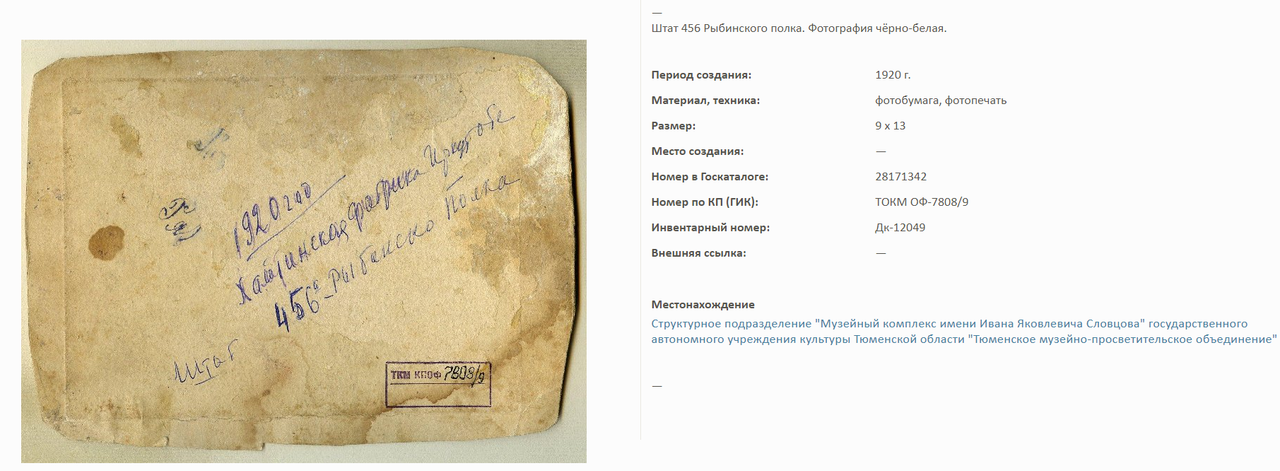 1920 год
Хайтинская фабрика Иркутове
456го Рыбинско Полка
Штат
ТКМ КПОФ 7808/9
—
Штат 456 Рыбинского полка. Фотография чёрно-белая.
Период создания: 1920 г.
Материал, техника: фотобумага, фотопечать
Размер: 9 x 13
Место создания: —
Номер в Госкаталоге: 28171342
Номер по КП (ГИК): ТОКМ ОФ-7808/9
Инвентарный номер: Дк-12049
Внешняя ссылка: —
Местонахождение
Структурное подразделение "Музейный комплекс имени Ивана Яковлевича Словцова" государственного
автономного учреждения культуры Тюменской области "Тюменское музейно-просветительское объединение"
—